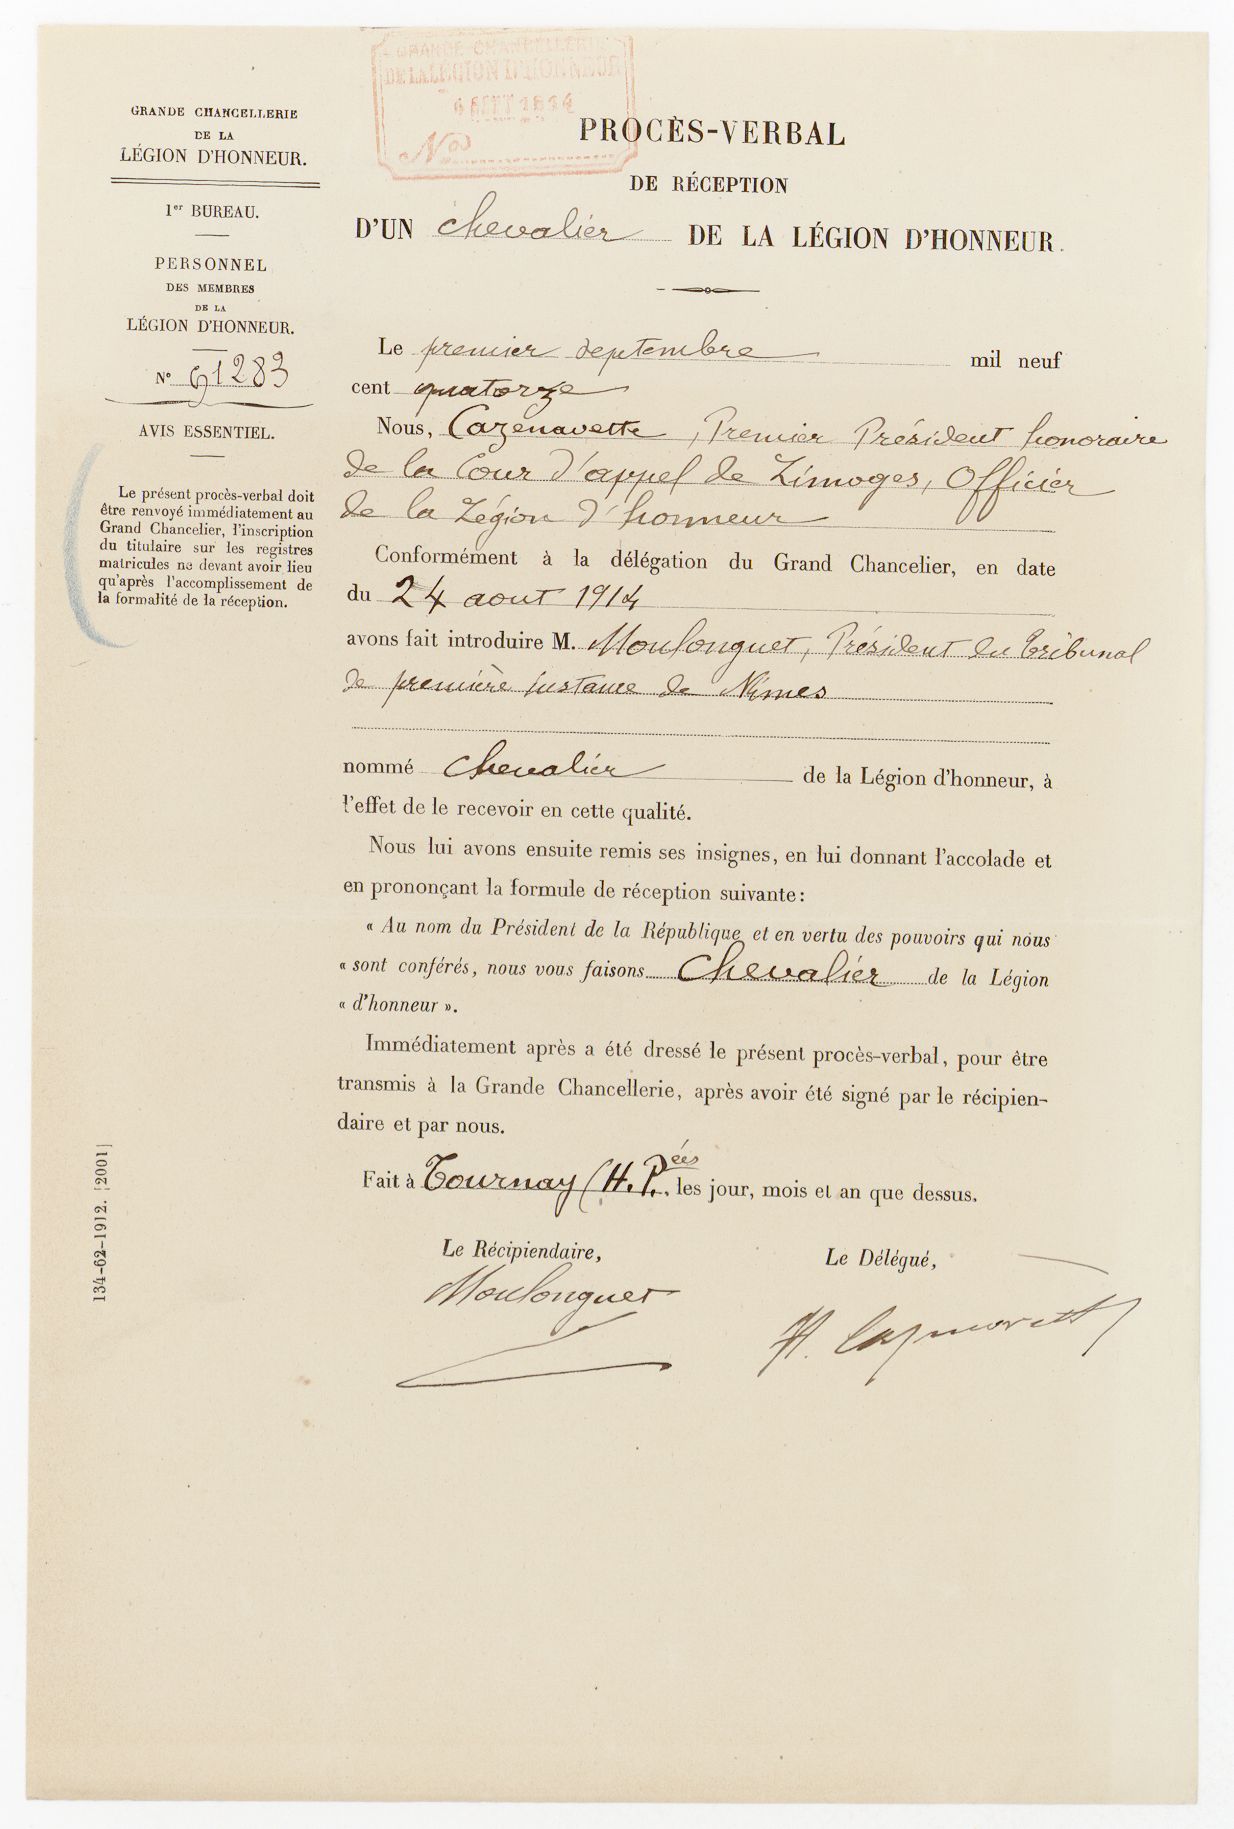 GRANDE CHANCELLERIE
DE LA LÉGION D'HONNEUR
6 SEPT 1914
Nos
GRANDE CHANCELLERIE
DE LA
LÉGION D'HONNEUR.
1er BUREAU.
PERSONNEL
DES MEMBRES
DE LA
LÉGION D'HONNEUR.
N° 91283
AVIS ESSENTIEL.
Le présent procès-verbal doit
être renvoyé immédiatement au
Grand Chancelier, l'inscription
du titulaire sur les registres
matricules ne devant avoir lieu
qu'après l'accomplissement de
la formalité de la réception.
134-62-1912. [2001]
PROCÈS-VERBAL
DE RÉCEPTION
D'UN chevalier DE LA LÉGION D'HONNEUR.
Le premier septembre mil neuf
cent quatorze
Nous, Cazenavette, Premier Président honoraire
de la Cour d'appel de Limoges, Officier
de la Légion d'honneur
Conformément à la délégation du Grand Chancelier, en date
du 24 aout 1914
avons fait introduire M. Moulonguet, Président du tribunal
de première instance de Nîmes
nommé Chevalier de la Légion d'honneur, à
l'effet de le recevoir en cette qualité.
Nous lui avons ensuite remis ses insignes, en lui donnant l'accolade et
en prononçant la formule de réception suivante:
« Au nom du Président de la République et en vertu des pouvoirs qui nous
« sont conférés, nous vous faisons Chevalier de la Légion
« d'honneur ».
Immédiatement après a été dressé le présent procès-verbal, pour être
transmis à la Grande Chancellerie, après avoir été signé par le récipien-
daire et par nous.
Fait à Tournay (H. P.ées, les jour, mois et an que dessus.
Le Récipiendaire,
Le Délégué,
Moulonguet
H. Cazenavette